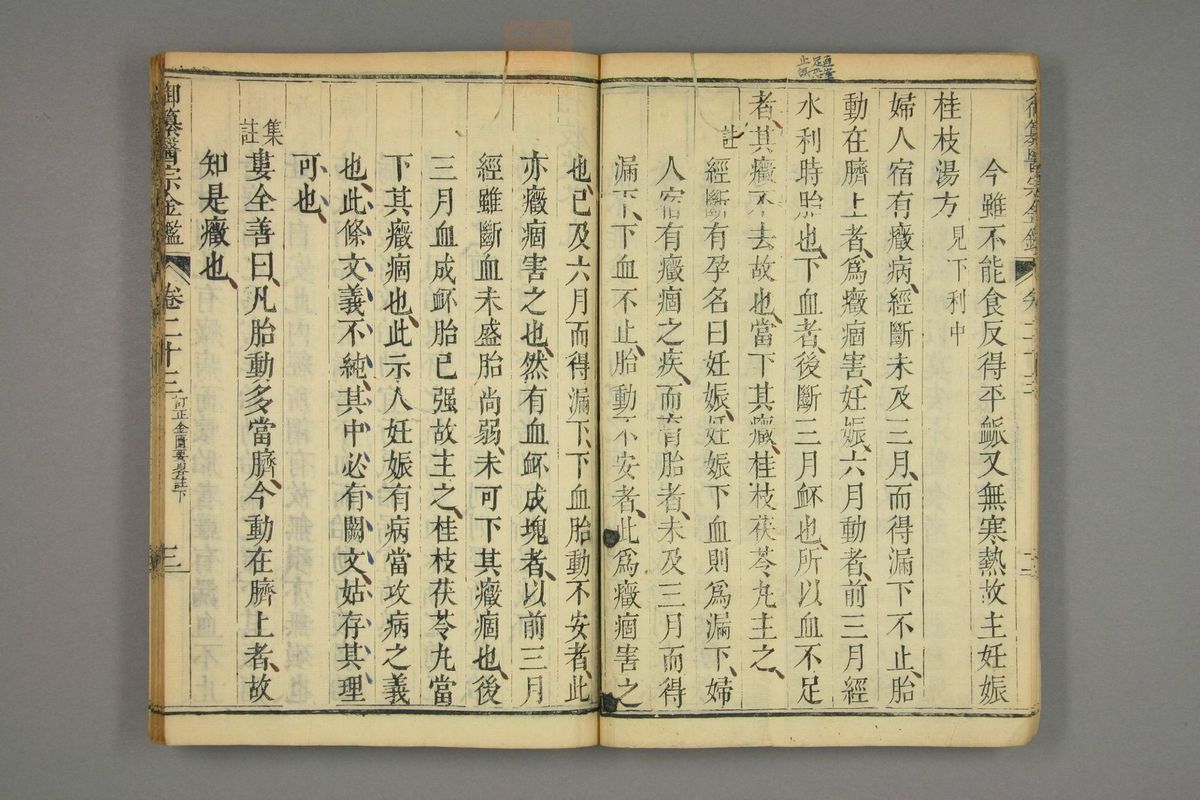 今雖不能食反得平䘑又無寒熱故主妊娠
桂枝湯方見下利中
婦人宿有癥病經斷未及三月而得漏下不止胎
動在臍上者爲癥痼害妊娠六月動者前三月經
水利時胎也下血者後斷三月衃也所以血不足
者其癥不去故也當下其癥桂枝茯苓丸主之
註
經斷有孕名曰妊娠妊娠下血則爲漏下婦
人宿有癥痼之疾而育胎者未及三月而得
漏下下血不止胎動不安者此爲癥痼害之
也已及六月而得漏下下血胎動不安者此
亦癥痼害之也然有血衃成塊者以前三月
經雖斷血未盛胎尚弱未可下其癥痼也後
三月血成衃胎已强故主之桂枝茯苓丸當
下其癥痼也此示人妊娠有病當攻病之義
也此條文義不純其中必有闕文姑存其理
可也
集註
婁全善曰凡胎動多當臍今動在臍上者故
知是癥也
御纂醫宗金鑑
卷二十三
訂正金匱要畧註下
三